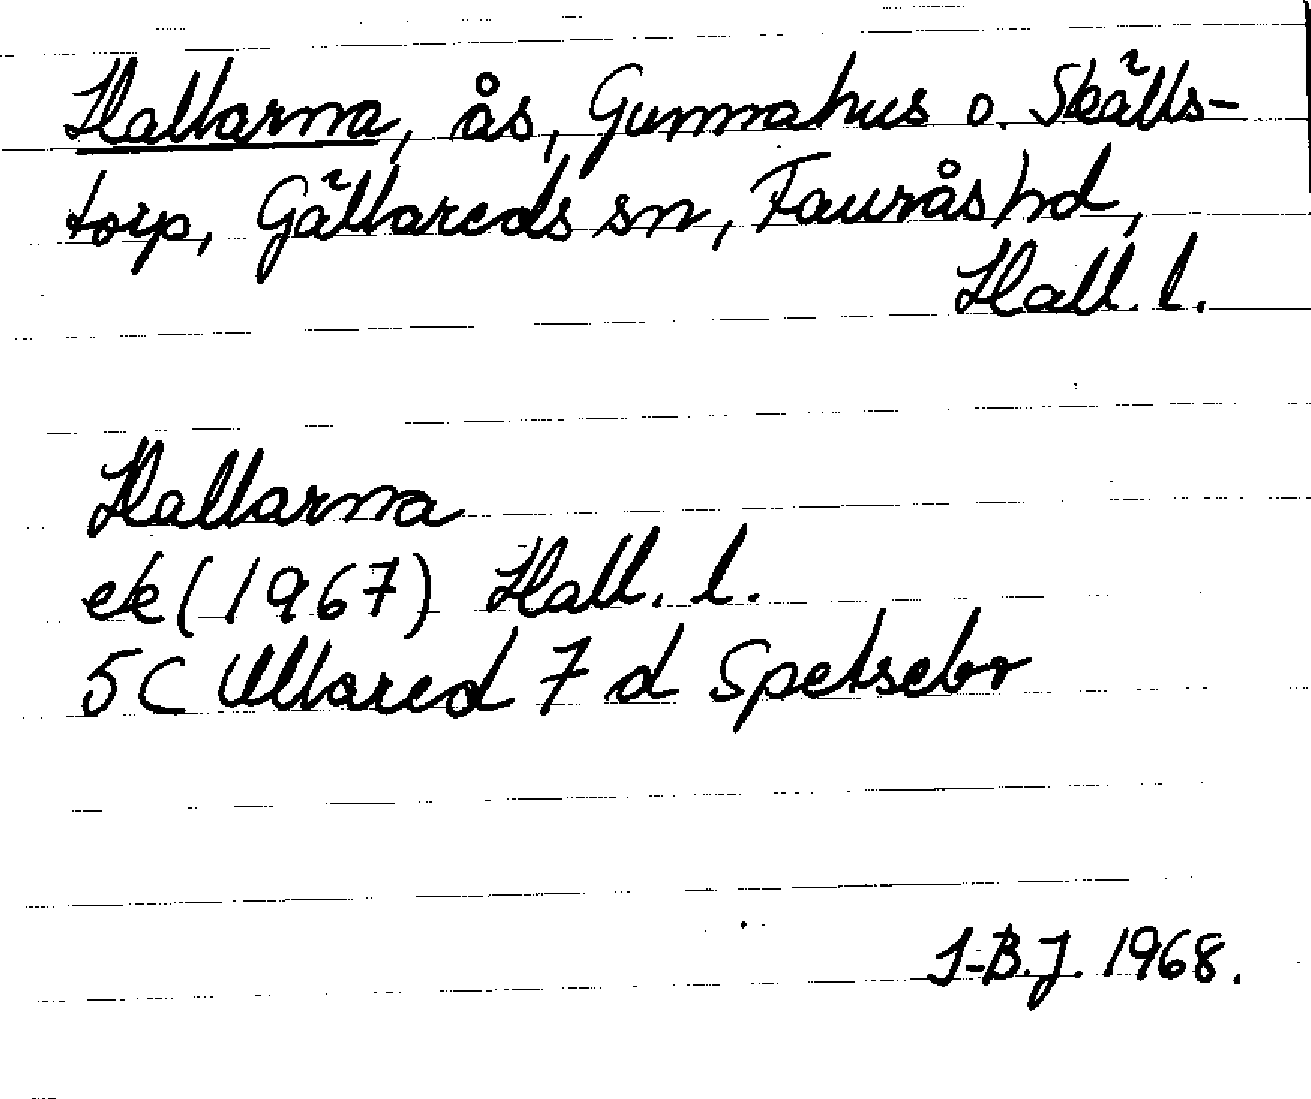 Hallarna, ås, Gunnahus o. Skälls-
torp, Gällareds sn, Faurås hd,
Hall. l.
Hallarna
ek (1967) Hall. l.
5C Ullared 7 d Spetsebo
I-B.J. 1968.